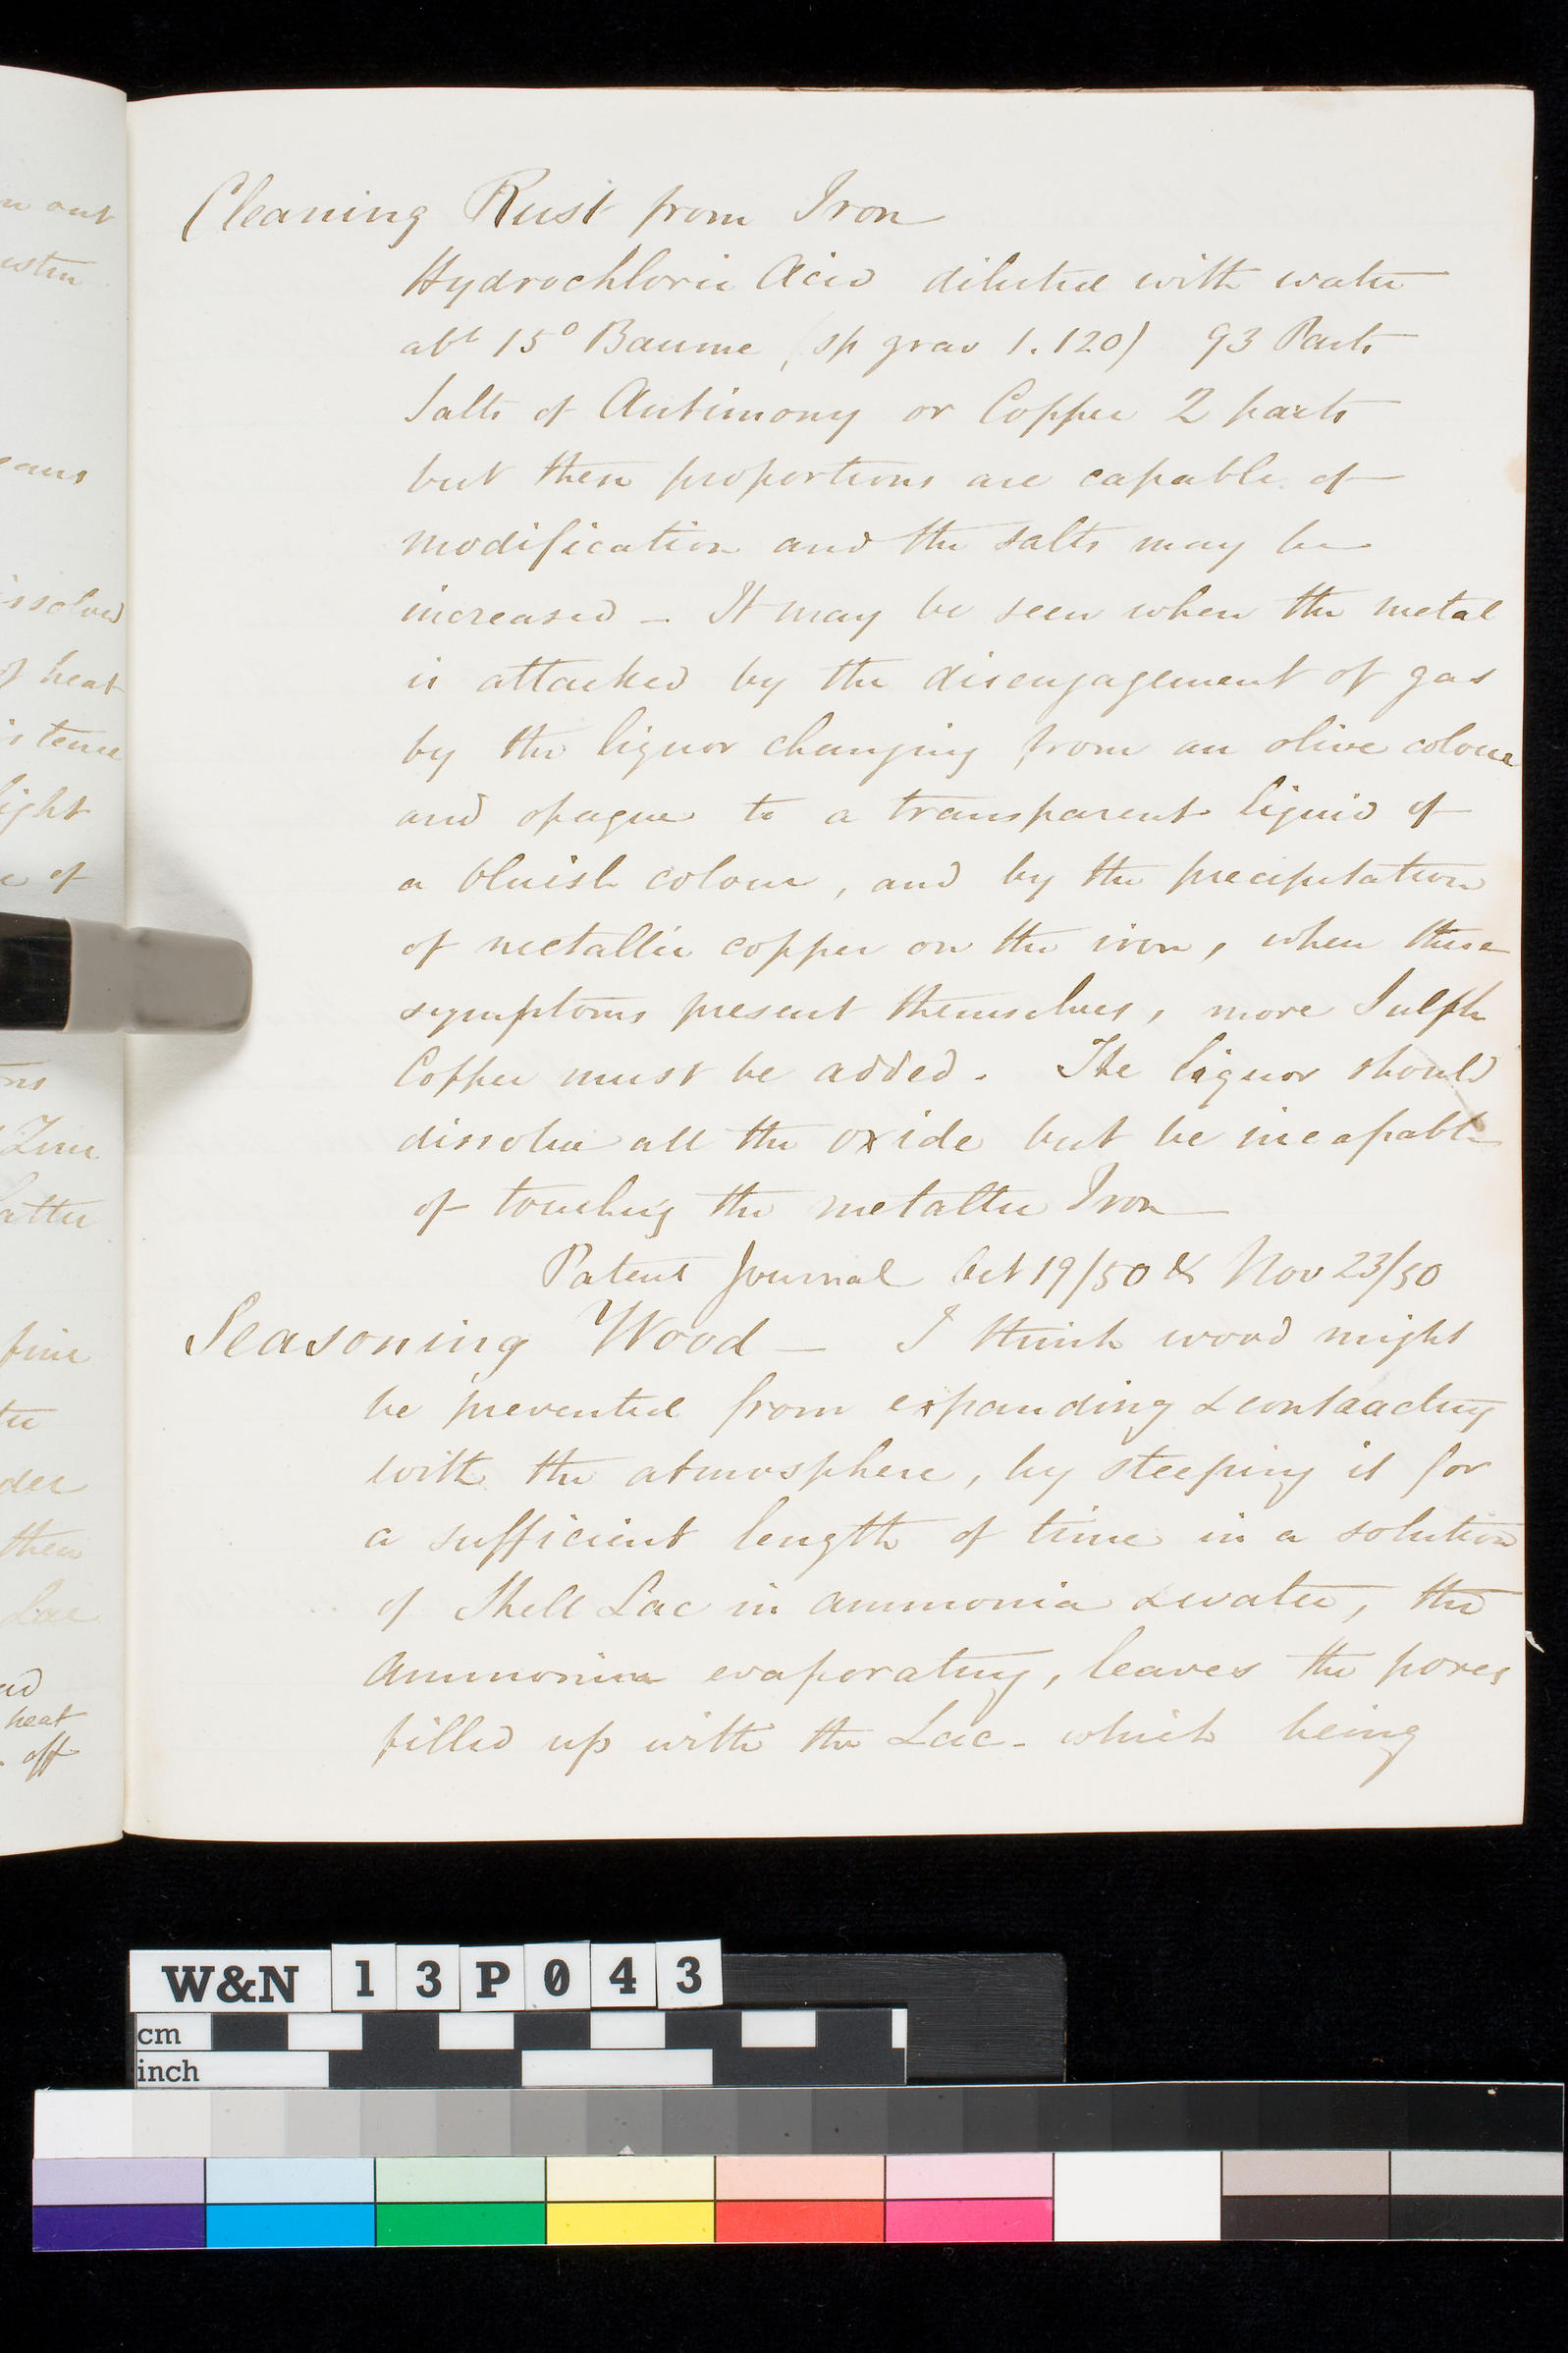 Cleaning Rust from Iron
Hydrochloric Acid diluted with water
abt 15° Baume (sp grav 1.120) 93 Parts
Salts of Antimony or Copper 2 parts
but these proportions are capable of
modification and the salts may be
increased – It may be seen when the metal
is attacked by the disengagement of gas
by the liquor changing from an olive colour
and opaque to a transparent liquid of
a bluish colour, and by the precipitation
of metallic copper on the iron, when these
symptoms present themselves, more Sulph
Copper must be added. The liquor should
dissolve all the oxide but be incapable
of touching the metallic Iron
Patent Journal Oct 19/50 & Nov 23/50
Seasoning Wood – I think wood might
be prevented from expanding & contracting
with the atmosphere, by steeping it for
a sufficient length of time in a solution
of Shell Lac in ammonia & water, the
ammonia evaporating, leaves the pores
filled up with the Lac - which being
n out
eans
issolved
of heat
istence
light
e of
ns
Zinc
latter
fine
der
then
Lac
heat
off
W&N 13P043
cm
inch